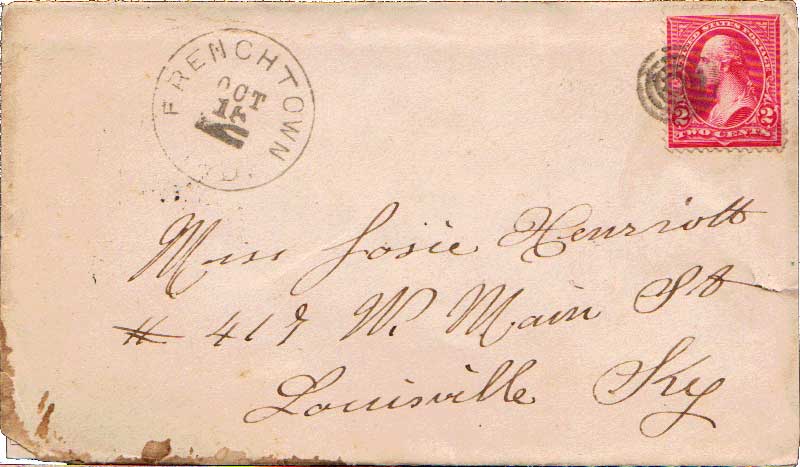 FRENCHTOWN
OCT
14
IND.
UNITED STATES POSTAGE
2 2
TWO CENTS
Miss Josie Henriott
# 417 W. Main St
Louisville Ky